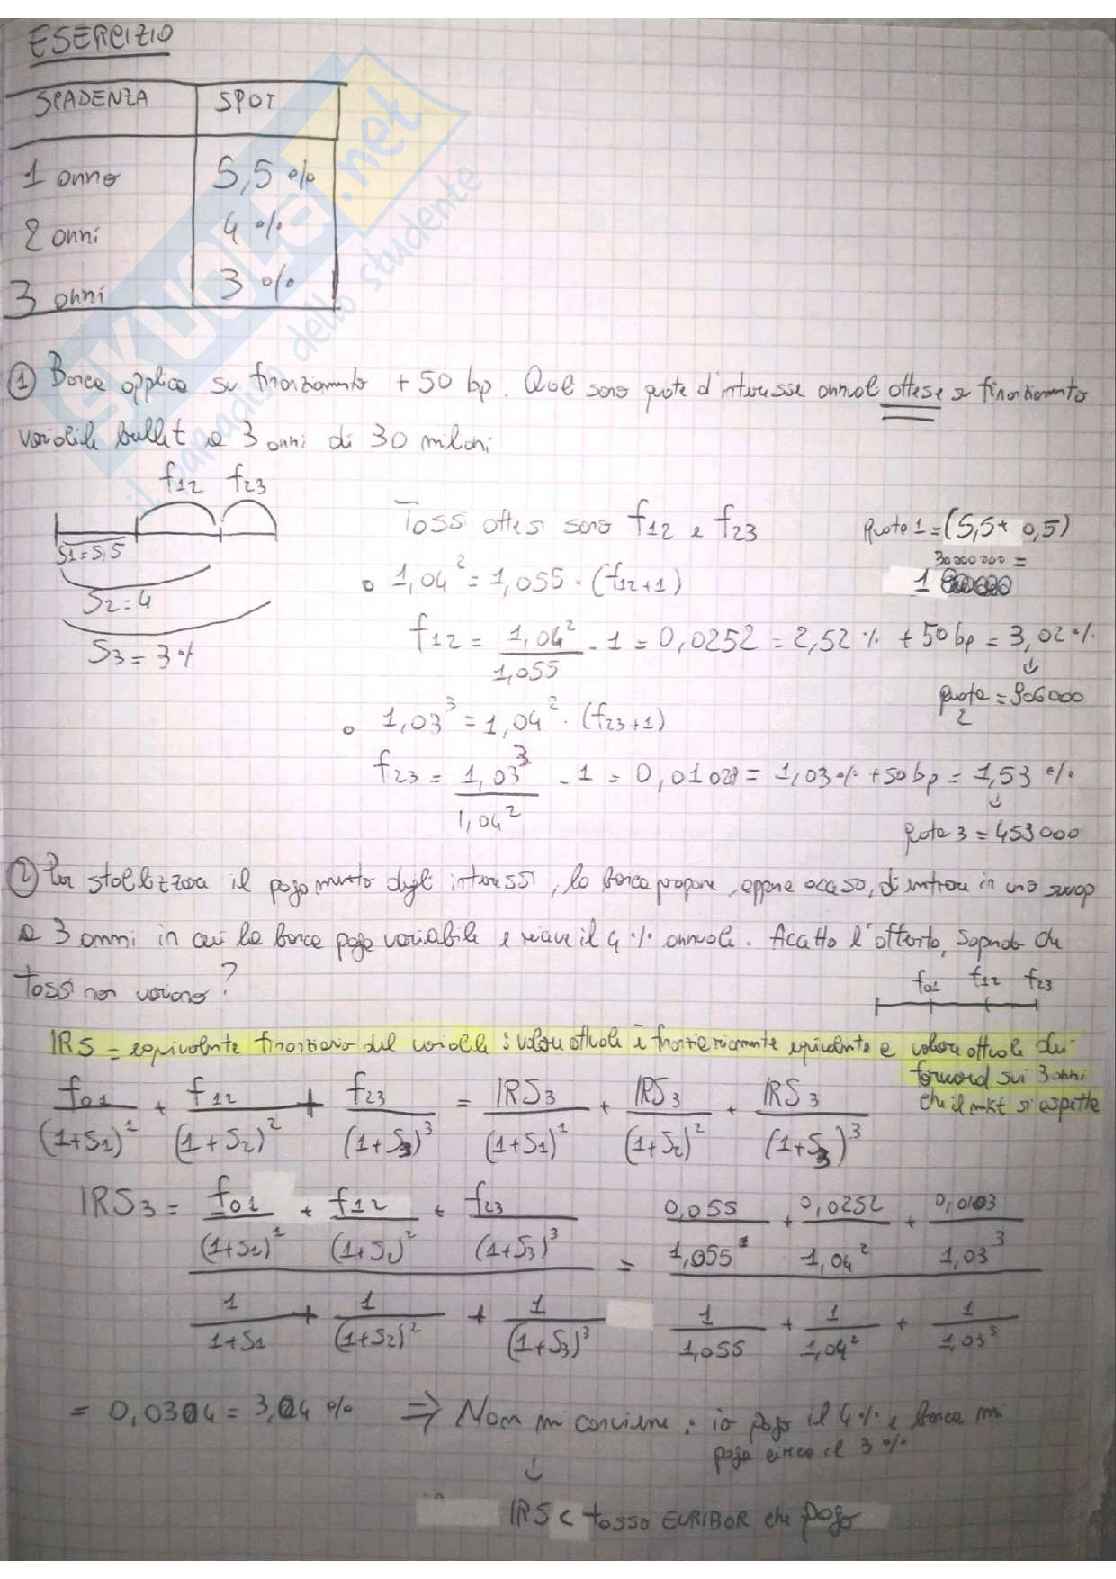 ESERCIZIO
SCADENZA SPOT
1 anno 5,5 %
2 anni 4 %
3 anni 3 %
① Banca applica su finanziamento +50 bp. Quali sono quote d'interesse annuali attese se finanziamento
variabile bullet a 3 anni di 30 milioni
f12 f23
S1=5,5
S2=4
S3=3%
Tassi attesi sono f12 e f23
Quota 1=(5,5+ 0,5)
30000000 =
1
1,04² = 1,055 · (f12+1)
f12 = 1,04² / 1,055 - 1 = 0,0252 = 2,52 % + 50 bp = 3,02 %
quota 2 = 906000
1,03³ = 1,04² · (f23+1)
f23 = 1,03³ / 1,04² - 1 = 0,0103 = 1,03 % + 50 bp = 1,53 %
Quota 3 = 453000
② Per stabilizzare il pagamento degli interessi, la banca propone, appena accaso, di entrare in uno swap
a 3 anni in cui la banca paga variabile e riceve il 4 % annuale. Accetto l'offerta, sapendo che
tassi non variano?
f01 f12 f23
IRS = equivalente finanziario del variabile : valore attuale è finanziariamente equivalente a valore attuale dei
forward sui 3 anni
che il mkt si aspetta
f01 / (1+S1)¹ + f12 / (1+S2)² + f23 / (1+S3)³ = IRS3 / (1+S1)¹ + IRS3 / (1+S2)² + IRS3 / (1+S3)³
IRS3 = f01 / (1+S1)¹ + f12 / (1+S2)² + f23 / (1+S3)³ = 0,055 / 1,055¹ + 0,0252 / 1,04² + 0,0103 / 1,03³
1 / 1+S1 + 1 / (1+S2)² + 1 / (1+S3)³ 1 / 1,055 + 1 / 1,04² + 1 / 1,03³
= 0,0304 = 3,04 % ⇒ Non mi conviene : io pago il 4 % e banca mi
paga circa il 3 %
IRS < tasso EURIBOR che pago
skuola.net
il paradiso dello studente